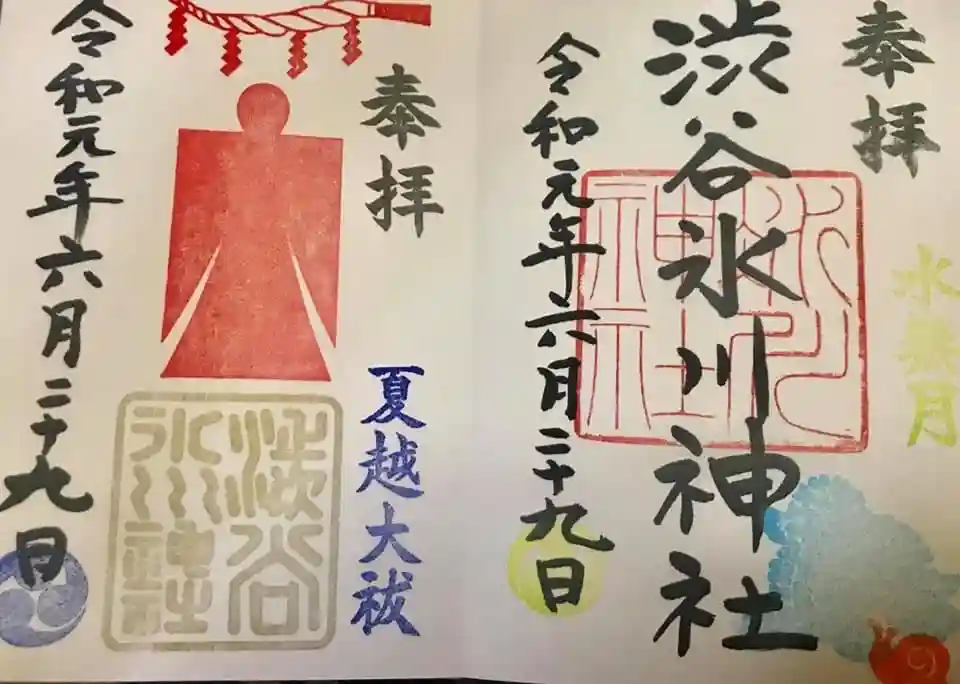 奉拝
水無月
渋谷氷川神社
氷川神社
令和元年六月二十九日
奉拝
夏越大祓
渋谷氷川神社
令和元年六月二十九日